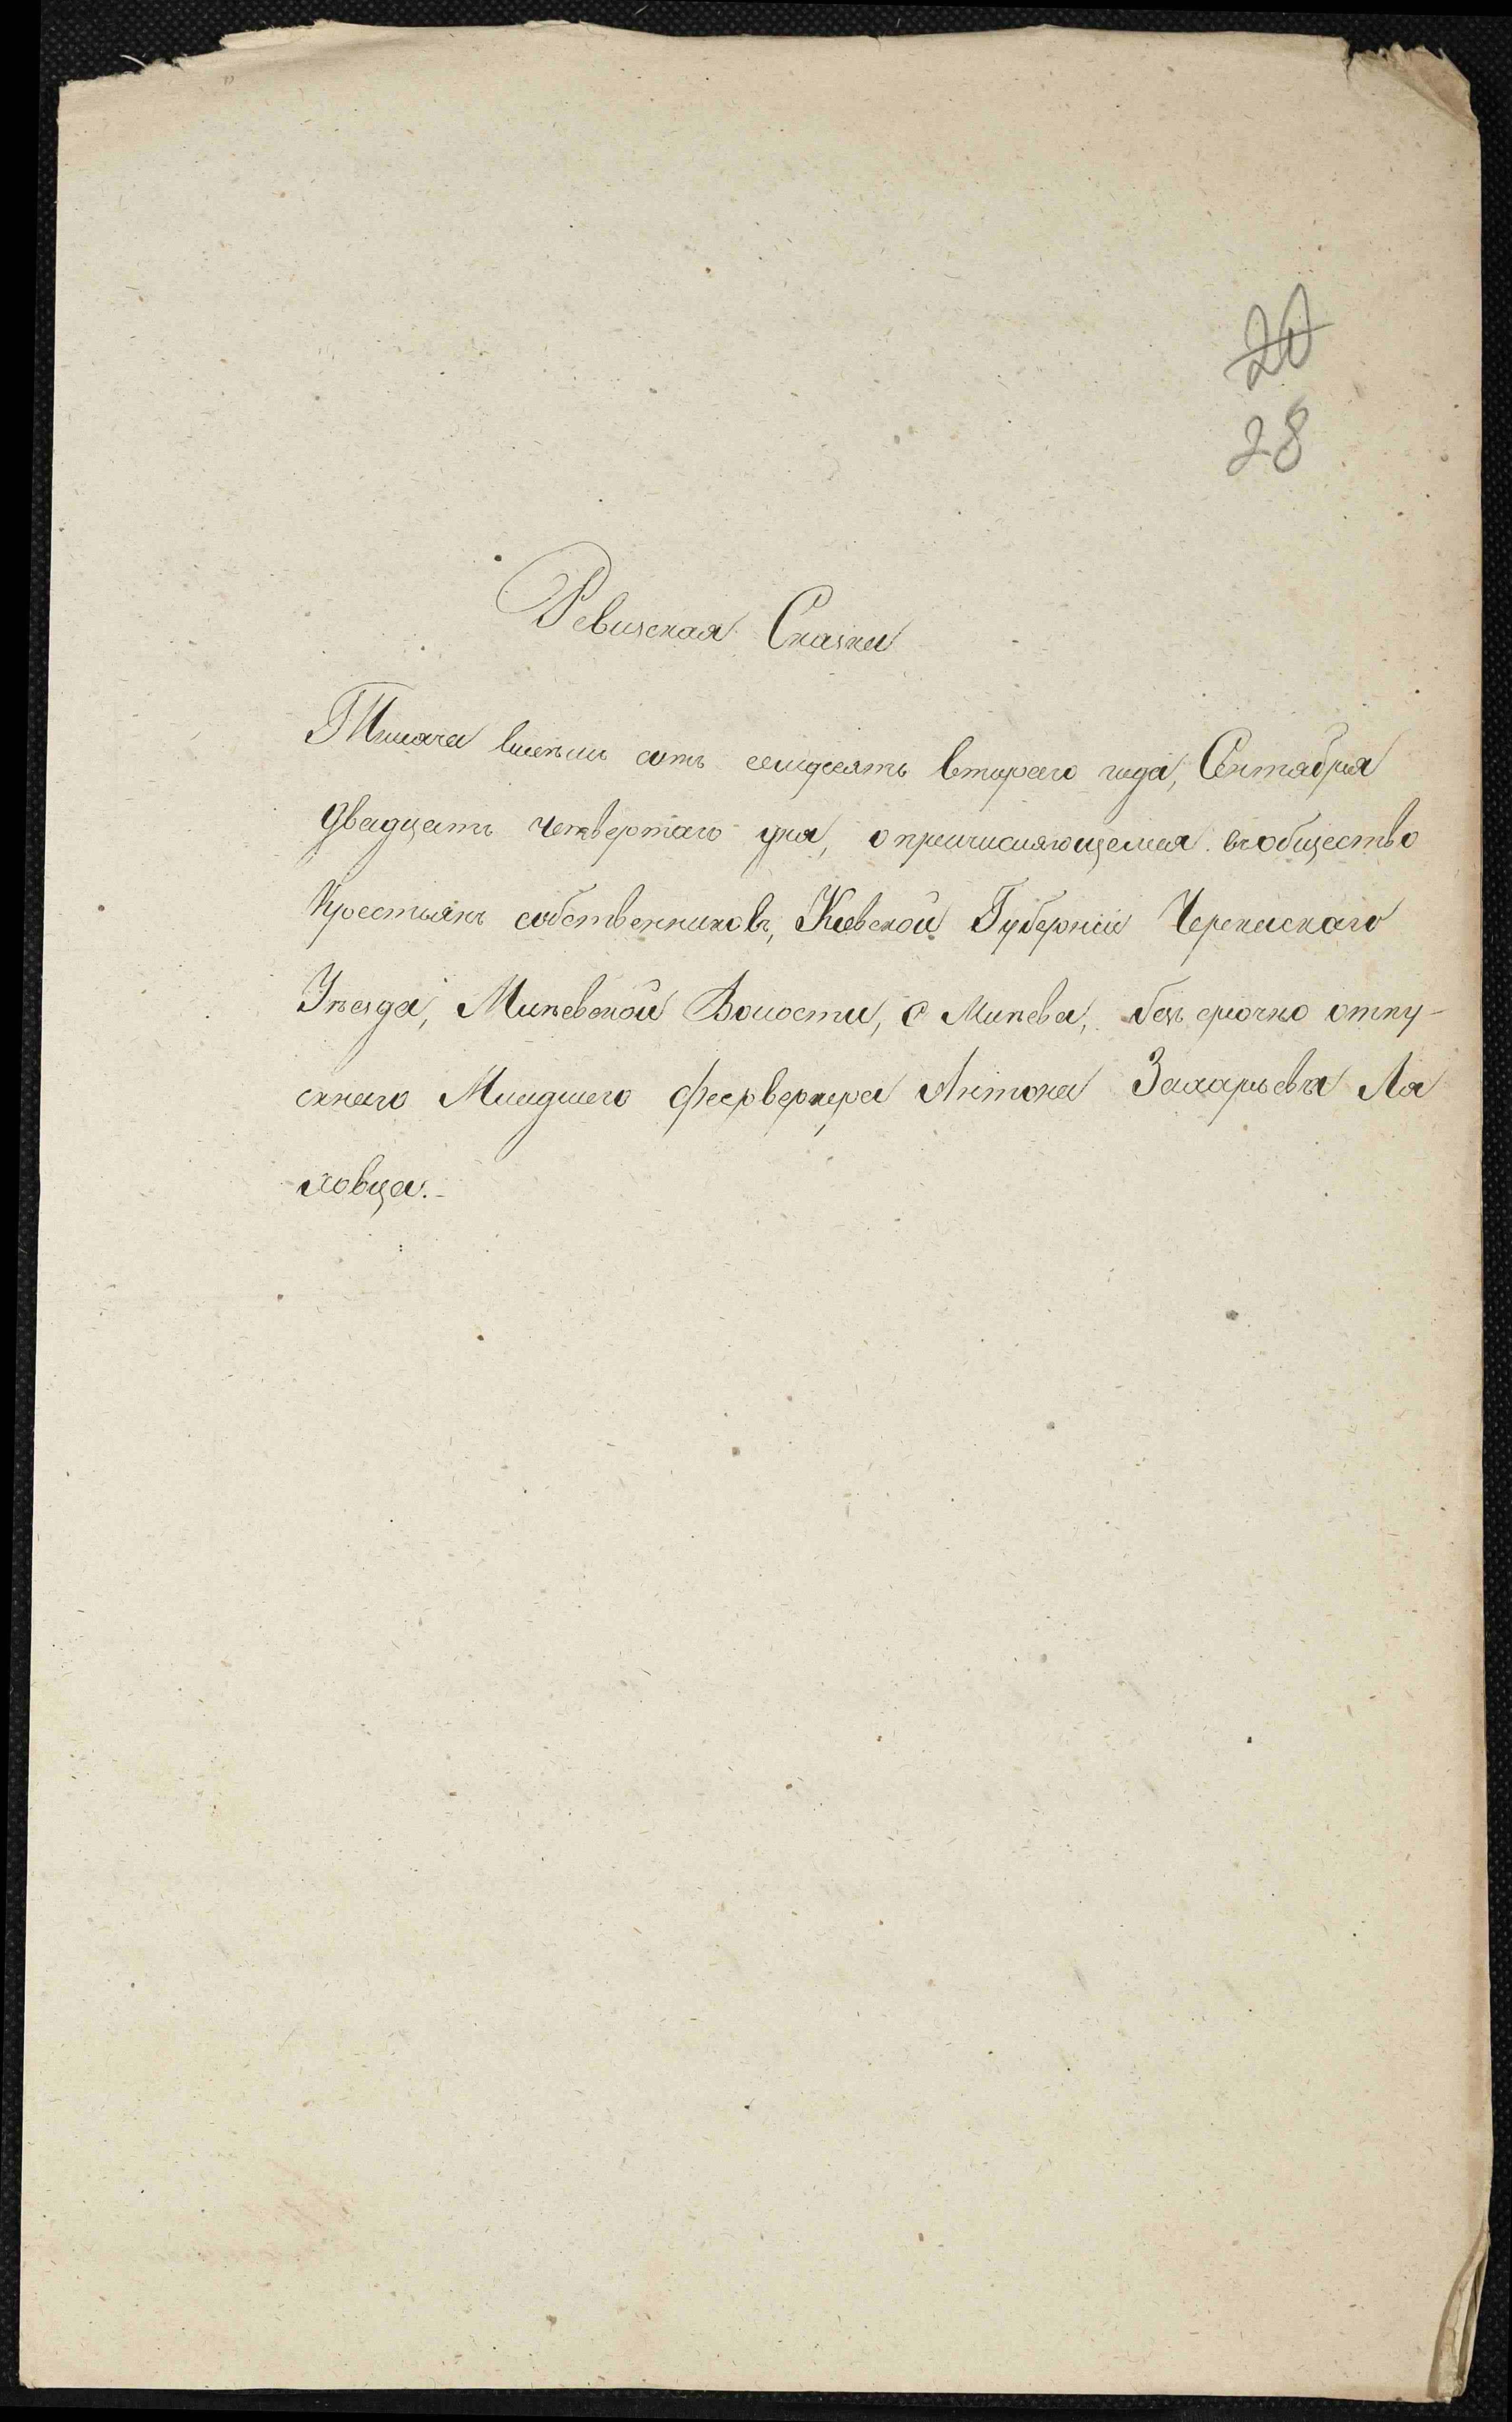 20
28
Ревизская Сказка
Тысяча восемь сотъ семидесять втораго года, Сентября
двадцать четвертаго дня, о причисляющемся въ общество
Крестьянъ собственниковъ, Кіевской Губерніи Черкаскаго
Уѣзда, Млѣевской Волости, с Млѣева, безъ срочно отпу-
скнаго Младшего феерверкера Антона Захарьева Ля
ховца.-